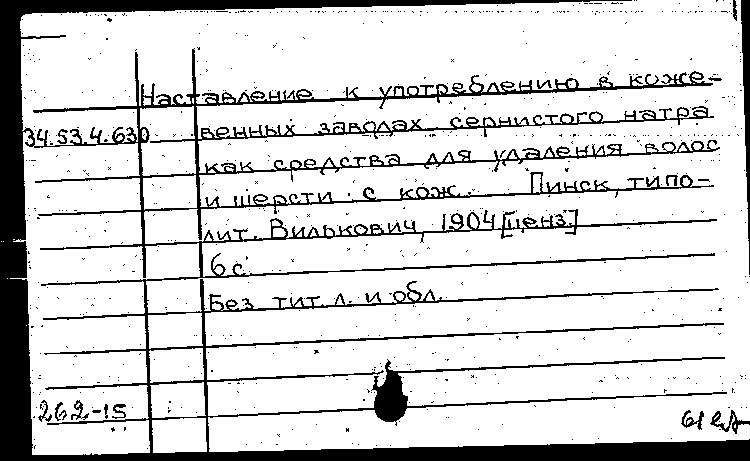 Наставление к употреблению в коже-
34.53.4.630 венных заводах сернистого натра
как средства для удаления волос
и шерсти с кож. Пинск, типо-
лит. Вилькович, 1904 [ценз.]
6 с.
Без тит. л. и обл.
262-15